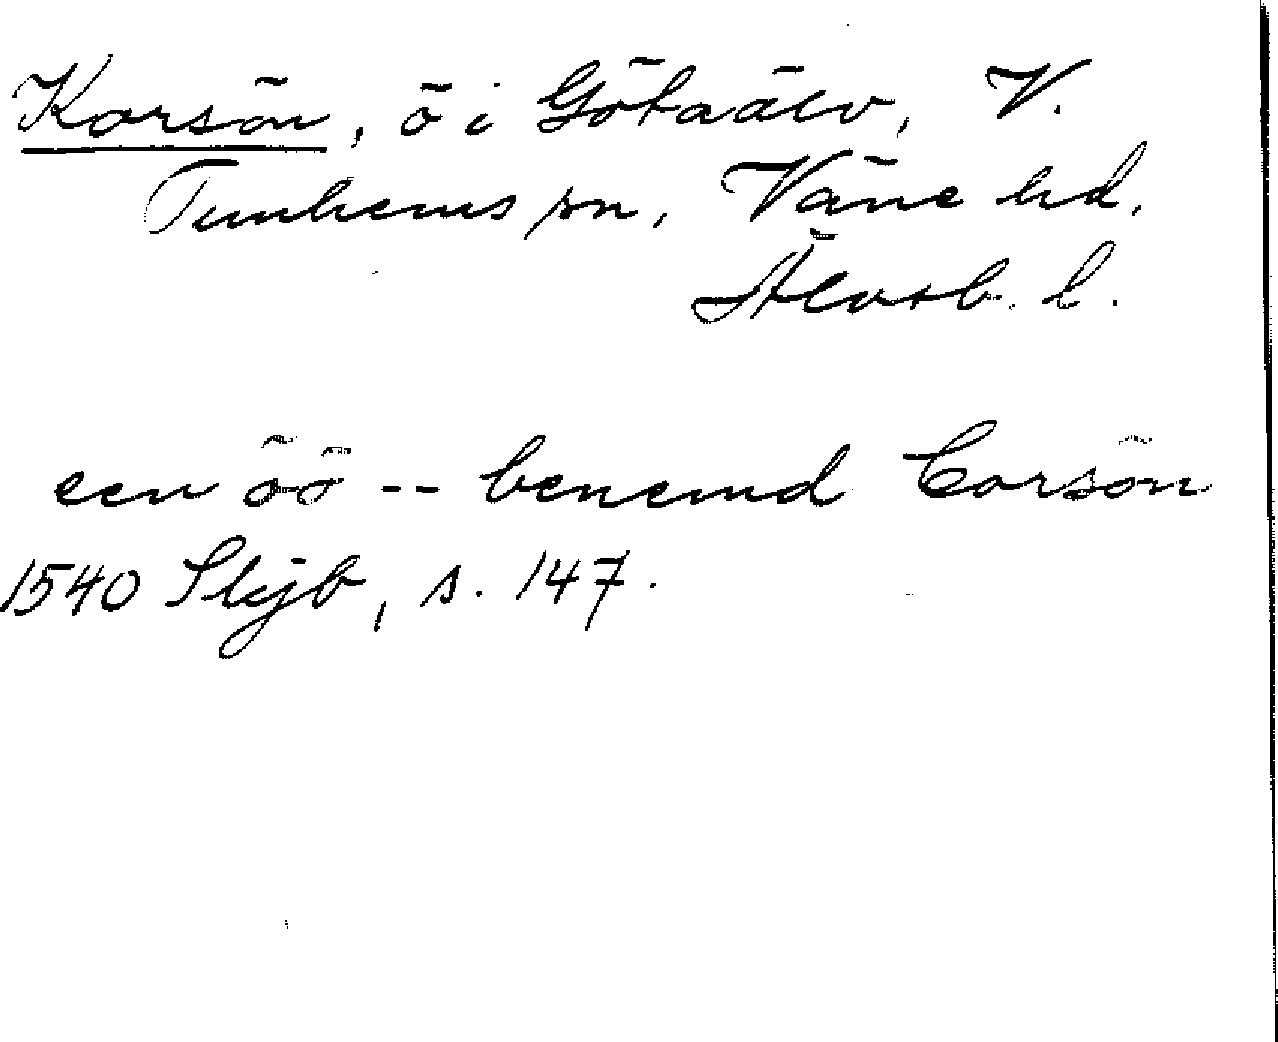 Korsön, ö i Götaälv, V.
Tunhems sn, Väne hd,
Älvsb. l.
een öö -- benemd Corsön
1540 Skjb, s. 147.